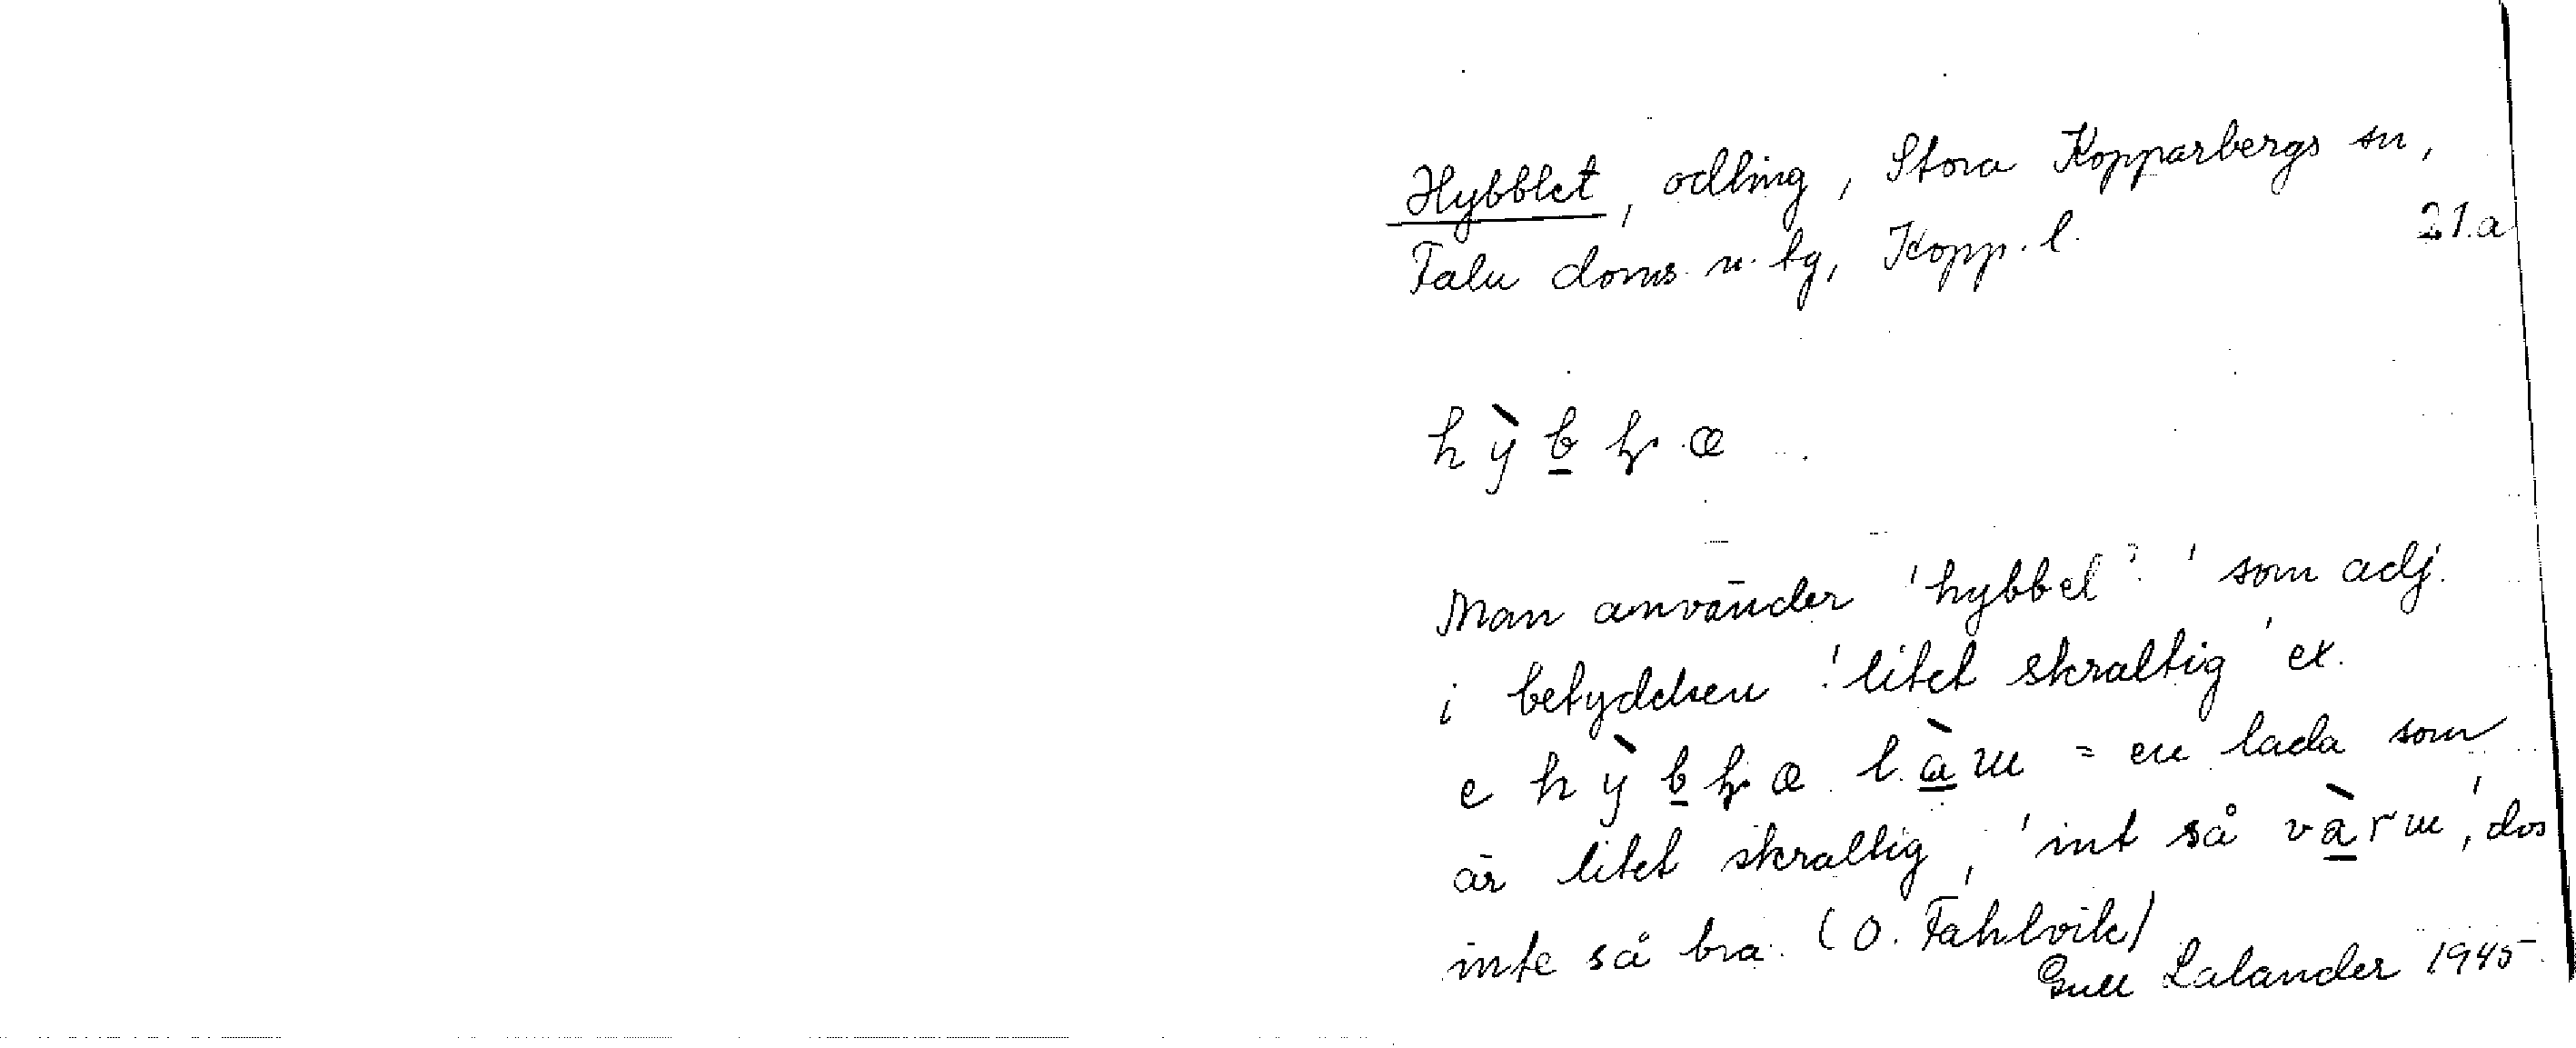 Hybblet, odling, Stora Kopparbergs sn,
Falu doms. n. tg, Kopp. l. 21.a
Man använder 'hybbel?' som adj.
i betydelsen 'litet skraltig' ex.
= en lada som
är litet skraltig, 'int så vàrm', dvs
inte så bra. (O. Fahlvik)
Gull Lalander 1945